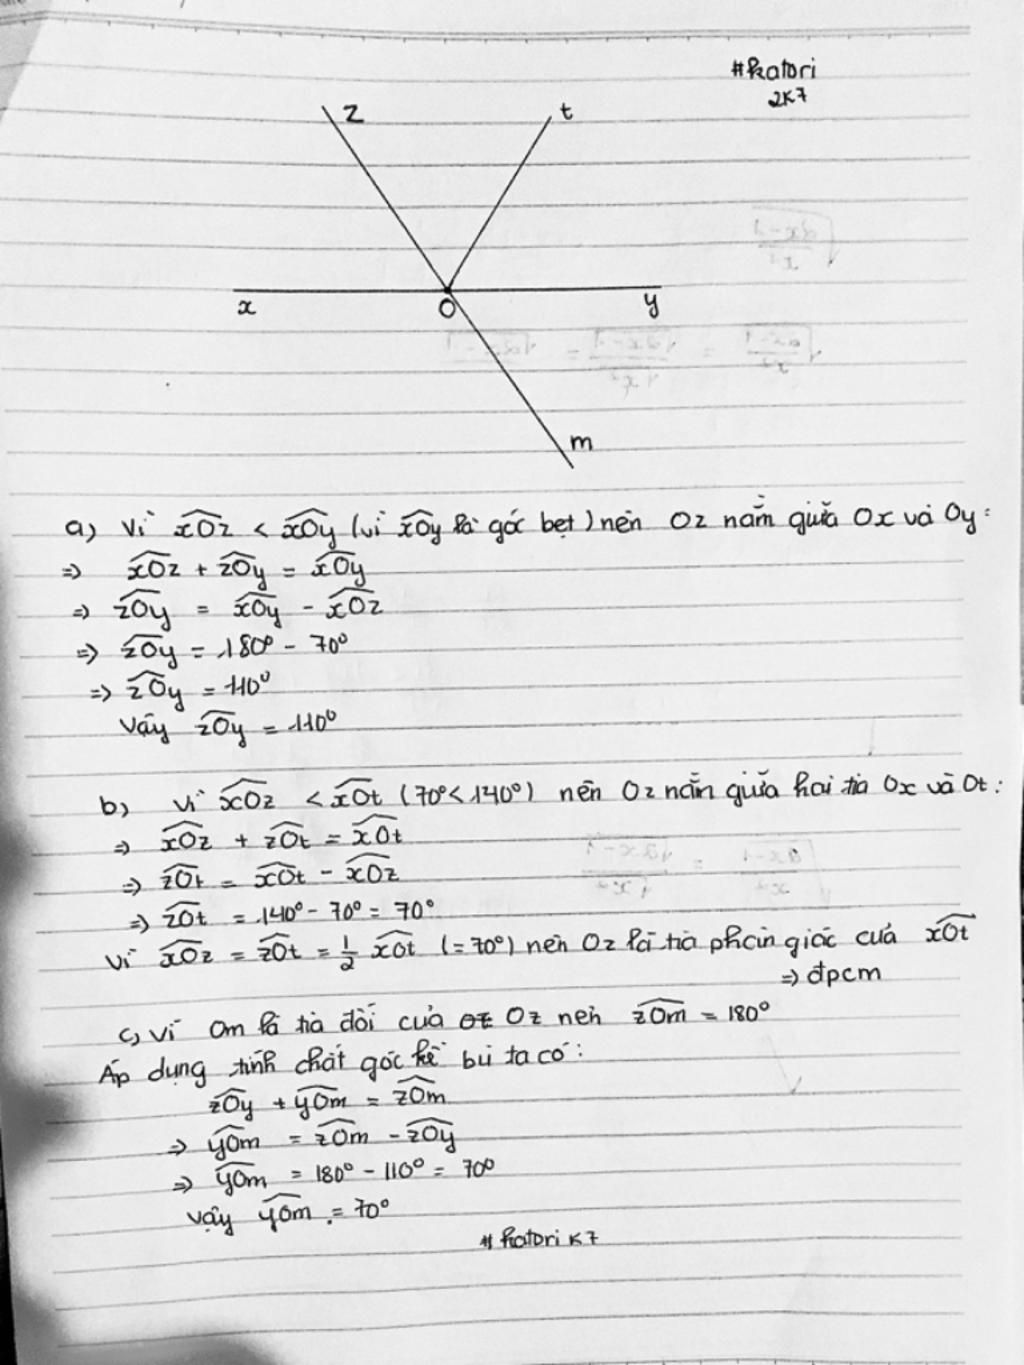 #Katori
2K7
z
t
x
O
y
m
a) Vì xOz < xOy (vì xOy là góc bẹt) nên Oz nằm giữa Ox và Oy:
=> xOz + zOy = xOy
=> zOy = xOy - xOz
=> zOy = 180° - 70°
=> zOy = 110°
Vậy zOy = 110°
b) Vì xOz < xOt (70° < 140°) nên Oz nằm giữa hai tia Ox và Ot:
=> xOz + zOt = xOt
=> zOt = xOt - xOz
=> zOt = 140° - 70° = 70°
Vì xOz = zOt = 1/2 xOt (= 70°) nên Oz là tia phân giác của xOt
=> đpcm
c, Vì Om là tia đối của Oz nên zOm = 180°
Áp dụng tính chất góc kề bù ta có:
zOy + yOm = zOm
=> yOm = zOm - zOy
=> yOm = 180° - 110° = 70°
Vậy yOm = 70°
# Katori K7